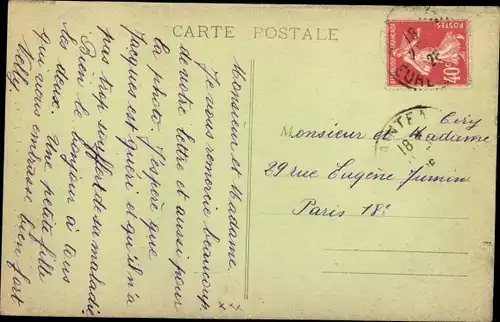 CARTE POSTALE
Monsieur et Madame.
Je vous remercie beaucoup
de votre lettre et aussi pour
la photo. J'espère que
Jacques est guéri et qu'il n'a
pas trop souffert de sa maladie
Bien le bonjour à tous
les deux. Une petite fille
qui vous embrasse bien fort
Nelly.
40c
18
EURE
18
Monsieur et Madame
29 rue Eugène Jumin
Paris 18e
xxx